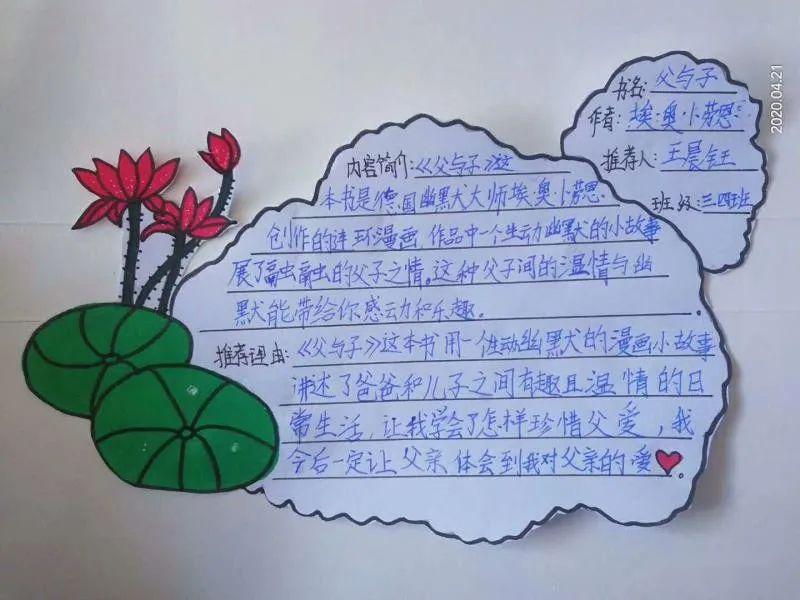 书名: 父与子
作者: 埃·奥·卜劳恩
推荐人: 王晨钰
班级: 三.四班
内容简介:《父与子》这
本书是德国幽默大师埃·奥·卜劳恩
创作的连环漫画,作品中一个生动幽默的小故事
展了融融的父子之情。这种父子间的温情与幽
默能带给你感动和乐趣。
推荐理由:《父与子》这本书用一个生动幽默的漫画小故事
讲述了爸爸和儿子之间有趣且温情的日
常生活,让我学会了怎样珍惜父爱,我
今后一定让父亲体会到我对父亲的爱。
2020.04.21